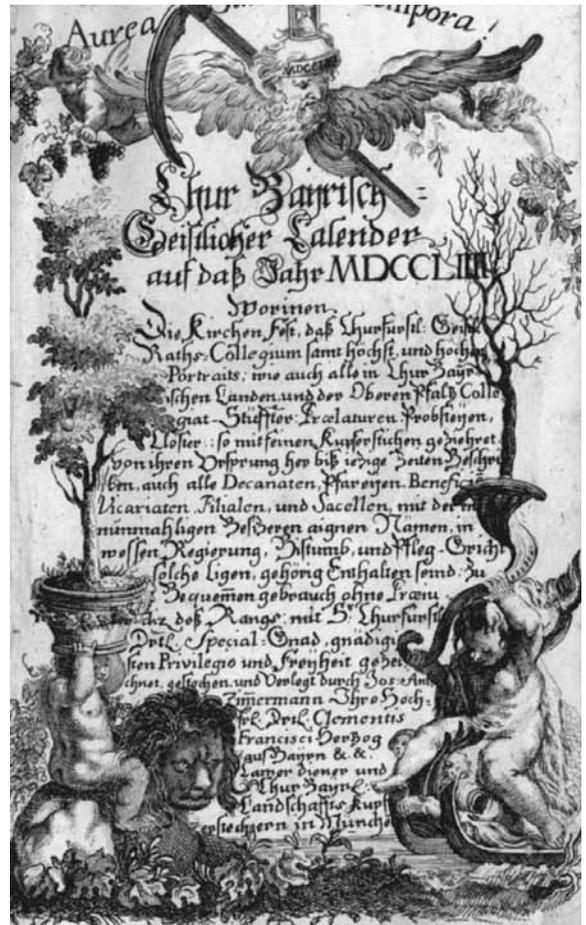 Aurea tempora!
MDCCLIIII
Chur Bayrisch=
Geistlicher Calender
auf daß Jahr MDCCLIIII
Worinen.
Die Kirchen Fest, daß Churfürstl: Geistl
Raths-Collegium samt höchst, und hochen
Portraits; wie auch alle in Chur Bayr
ischen Landen und der Oberen Pfaltz Colle
giat-Stüffter Prælaturen Probsteyen,
Clöster: so mit feinen Kupferstichen geziehret
von ihren Ursprung her biß iezige Zeiten Beschri
ben, auch alle Decanaten, Pfareyen, Beneficien
Vicariaten, Filialen, und Sacellen, mit der
nunmahligen Besizeren aignen Namen, in
wessen Regierung, Bistumb, und Pfleg-Gricht
solche ligen, gehörig Enthalten seind: Zu
Bequemen gebrauch ohne Præiu
diz deß Rangs: mit Sr. Churfürstl
Drtl. Special-Gnad, gnädigi
sten Privilegio und Freyheit gezei
chnet, gestochen, und Verlegt durch Jos: Ant:
Zimermann Ihro Hoch=
frl. Drtl. Clementis
Francisci Herzog
auß Bayrn &. &.
Camer diener und
Chur Bayrl:
Landschafts Kupf
erstechern in Münche